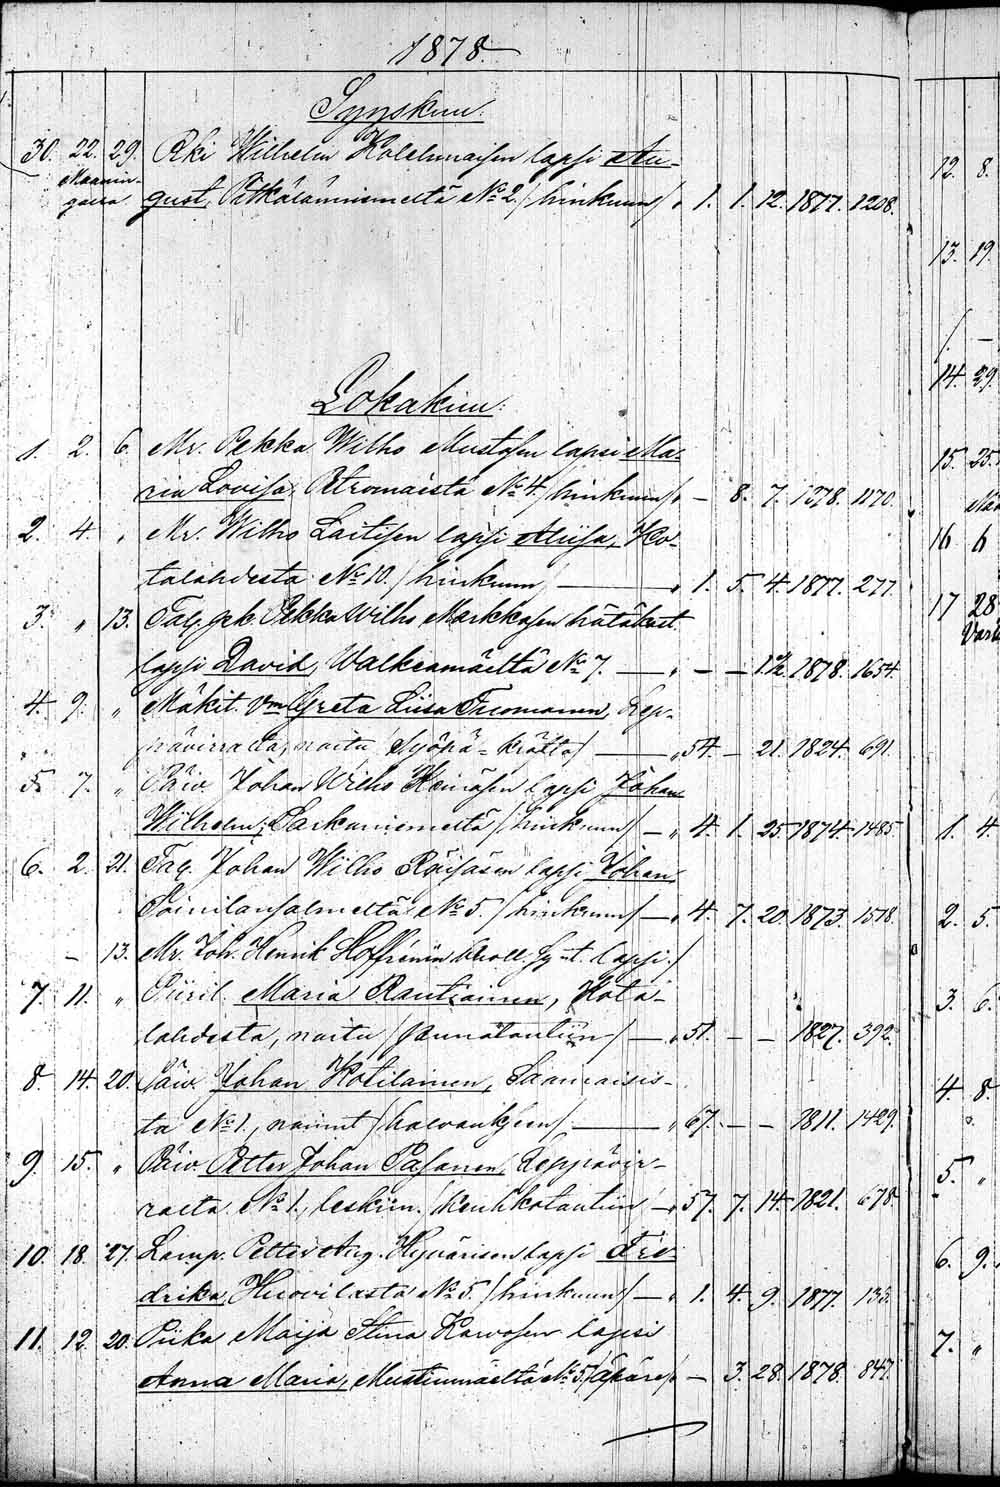 1878.
Syyskuu.
30. 22. 29. Rki Wilhelm Kolehmaisen lapsi Au-
Maanin-
gust, Pitkälänniemeltä No 2. /hinkuun/ " 1. 1. 12. 1877. 1208.
Lokakuu.
1. 2. 6. Mr. Pekka Wilho Mustosen lapsi Ma-
ria Lovisa, No 4. /hinkuun/ " – 8. 7. 1878. 1170.
2. 4. " Mr. Wilho Laitisen lapsi Ko-
talahdesta No 10. /hinkuun/ — " 1. 5. 4. 1877. 277.
3. " 13. Pekka Wilho Markkasen hätäkast.
lapsi David, Walkeamäeltä No 7. — " – – 1878. 1654.
4. 9. " Mäkit. Vm Greta Liisa Tuomainen, Lep-
pävirralta, naitu /Syöpä- — " 54. – 21. 1824. 691.
5. 7. " Päiv. Johan Wilho lapsi Johan
Wilhelm, Sarkaniemeltä /hinkuun/ — " 4. 1. 25. 1874. 1485.
6. 2. 21. Johan Wilho Räisäsen lapsi Johan
No 5. /hinkuun/ — " 4. 7. 20. 1873. 1518.
– 13. Mr. Joh. Henrik lapsi./
7. 11. " Maria Rautiainen, Kota-
lahdesta, naitu — " 51. – – 1827. 392.
8. 14. 20. Päiv. Johan Kotilainen, Saamaisis-
ta No 1., nainut — " 67. – – 1811. 1429.
9. 15. " Päiv. Petter Johan Pasanen, Leppävir-
ralta No 1., leskim. /keuhkotautiin/ — " 57. 7. 14. 1821. 678.
10. 18. 27. Lamp. Petter Aug. Hyvärisen lapsi Fre-
drika, Huovilasta No 5. /hinkuun/ — " 1. 4. 9. 1877. 133.
11. 12. 20. Piika Maija Stina Karvosen lapsi
Anna Maria, Mustinmäeltä No 5. /äpärä/ – 3. 28. 1878. 847.
12. 8.
13. 19.
14. 29.
15. 25.
16 6
17 28
1. 4.
2. 5.
3. 6.
4. 8.
5. "
6. 9.
7. "